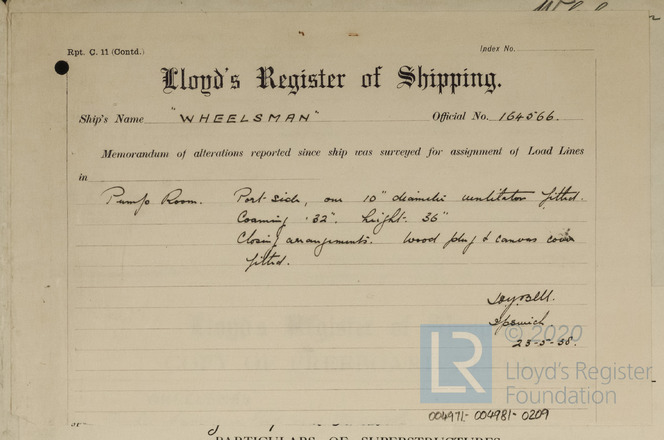 Rpt. C. 11 (Contd.)
Index No.
Lloyd's Register of Shipping.
Ship's Name "WHEELSMAN" Official No. 164566.
Memorandum of alterations reported since ship was surveyed for assignment of Load Lines
in
Pump Room. Port side, one 10" diameter ventilator fitted.
Coaming .32". height 36"
Closing arrangements. Wood plug & canvas cover
fitted.
Ipswich
23-5-38.
© 2020
LR Lloyd's Register
Foundation
004971-004981-0209
PARTICULARS OF SUPERSTRUCTURES